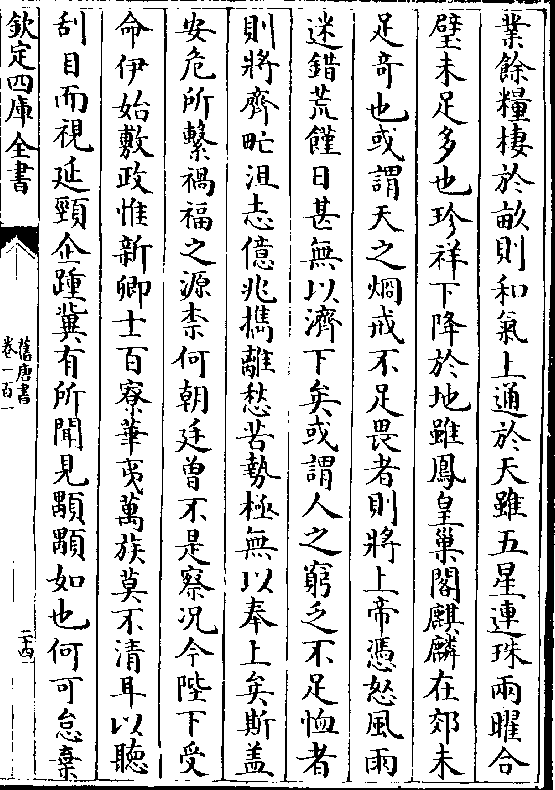 業餘糧棲於畝則和氣上通於天雖五星連珠兩曜合
璧未足多也珍祥下降於地雖鳳皇巢閣麒麟在郊未
足奇也或謂天之烱戒不足畏者則將上帝憑怒風雨
迷錯荒饉日甚無以濟下矣或謂人之窮乏不足恤者
則將齊甿沮志億兆攜離愁苦勢極無以奉上矣斯盖
安危所繫禍福之源柰何朝廷曾不是察况今陛下受
命伊始敷政惟新卿士百寮華夷萬族莫不清耳以聽
刮目而視延頸企踵冀有所聞見顒顒如也何可怠棄
欽定四庫全書
舊唐書
卷一百一